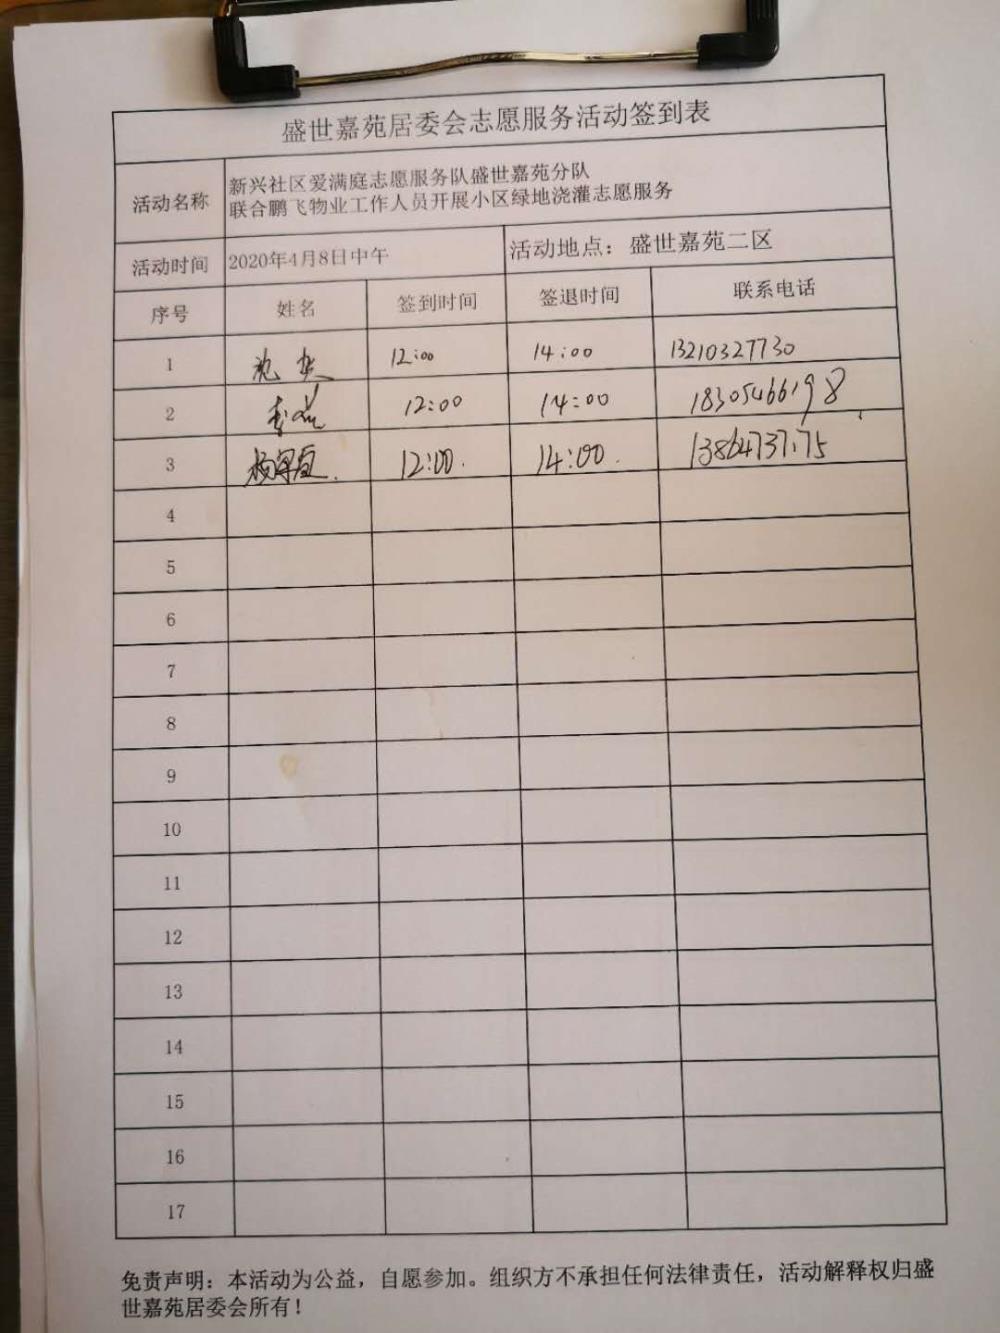 盛世嘉苑居委会志愿服务活动签到表
活动名称 新兴社区爱满庭志愿服务队盛世嘉苑分队
联合鹏飞物业工作人员开展小区绿地浇灌志愿服务
活动时间 2020年4月8日中午 活动地点：盛世嘉苑二区
序号 姓名 签到时间 签退时间 联系电话
1 12:00 14:00 13210327730
2 12:00 14:00 18305466198
3 12:00. 14:00. 13864737175
4
5
6
7
8
9
10
11
12
13
14
15
16
17
免责声明：本活动为公益，自愿参加。组织方不承担任何法律责任，活动解释权归盛
世嘉苑居委会所有！